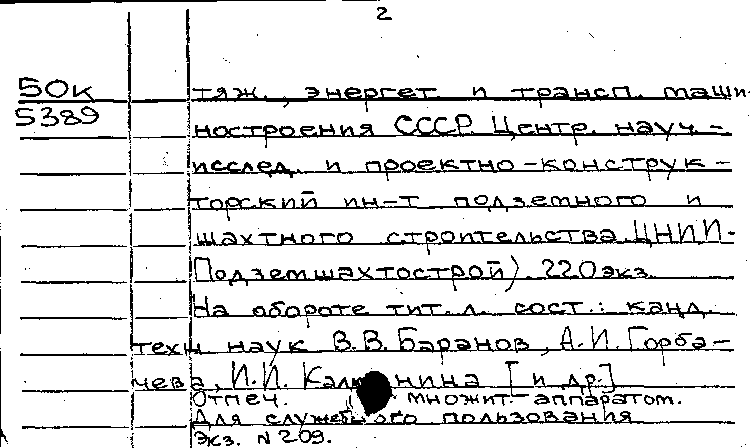 2
50к
5389
тяж., энергет. и трансп. маши-
ностроения СССР. Центр. науч.-
исслед. и проектно-конструк-
торский ин-т подземного и
шахтного строительства ЦНИИ-
Подземшахтострой). 220экз.
На обороте тит. л. сост.: канд.
техн наук В.В. Баранов, А.И. Горба-
чева, И.И. [и др.]
Отпеч. множит. аппаратом.
Для служебного пользования
Экз. №209.